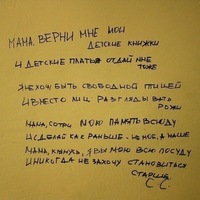 МАМА, ВЕРНИ МНЕ МОИ
ДЕТСКИЕ КНИЖКИ
И ДЕТСКИЕ ПЛАТЬЯ ОТДАЙ МНЕ
ТОЖЕ
Я НЕ ХОЧУ БЫТЬ СВОБОДНОЙ ПТИЦЕЙ
И ВМЕСТО ЛИЦ РАЗГЛЯДЫВАТЬ
РОЖИ
МАМА, СОТРИ МОЮ ПАМЯТЬ ВСЮДУ
И СДЕЛАЙ КАК РАНЬШЕ - НЕ МОЕ, А НАШЕ
МАМА, КЛЯНУСЬ, Я ВЫМОЮ ВСЮ ПОСУДУ
И НИКОГДА НЕ ЗАХОЧУ СТАНОВИТЬСЯ
СТАРШЕ